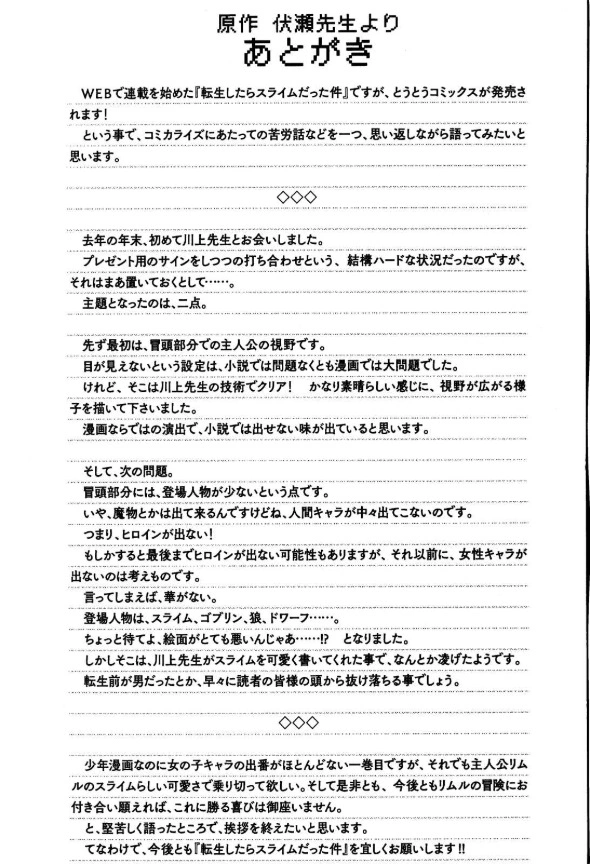 原作 伏瀬先生より
あとがき
WEBで連載を始めた『転生したらスライムだった件』ですが、とうとうコミックスが発売さ
れます!
という事で、コミカライズにあたっての苦労話などを一つ、思い返しながら語ってみたいと
思います。
◇◇◇
去年の年末、初めて川上先生とお会いしました。
プレゼント用のサインをしつつの打ち合わせという、結構ハードな状況だったのですが、
それはまあ置いておくとして……。
主題となったのは、二点。
先ず最初は、冒頭部分での主人公の視野です。
目が見えないという設定は、小説では問題なくとも漫画では大問題でした。
けれど、そこは川上先生の技術でクリア! かなり素晴らしい感じに、視野が広がる様
子を描いて下さいました。
漫画ならではの演出で、小説では出せない味が出ていると思います。
そして、次の問題。
冒頭部分には、登場人物が少ないという点です。
いや、魔物とかは出て来るんですけどね、人間キャラが中々出てこないのです。
つまり、ヒロインが出ない!
もしかすると最後までヒロインが出ない可能性もありますが、それ以前に、女性キャラが
出ないのは考えものです。
言ってしまえば、華がない。
登場人物は、スライム、ゴブリン、狼、ドワーフ……。
ちょっと待てよ、絵面がとても悪いんじゃあ……!? となりました。
しかしそこは、川上先生がスライムを可愛く書いてくれた事で、なんとか凌げたようです。
転生前が男だったとか、早々に読者の皆様の頭から抜け落ちる事でしょう。
◇◇◇
少年漫画なのに女の子キャラの出番がほとんどない一巻目ですが、それでも主人公リム
ルのスライムらしい可愛さで乗り切って欲しい。そして是非とも、今後ともリムルの冒険にお
付き合い願えれば、これに勝る喜びは御座いません。
と、堅苦しく語ったところで、挨拶を終えたいと思います。
てなわけで、今後とも『転生したらスライムだった件』を宜しくお願いします!!